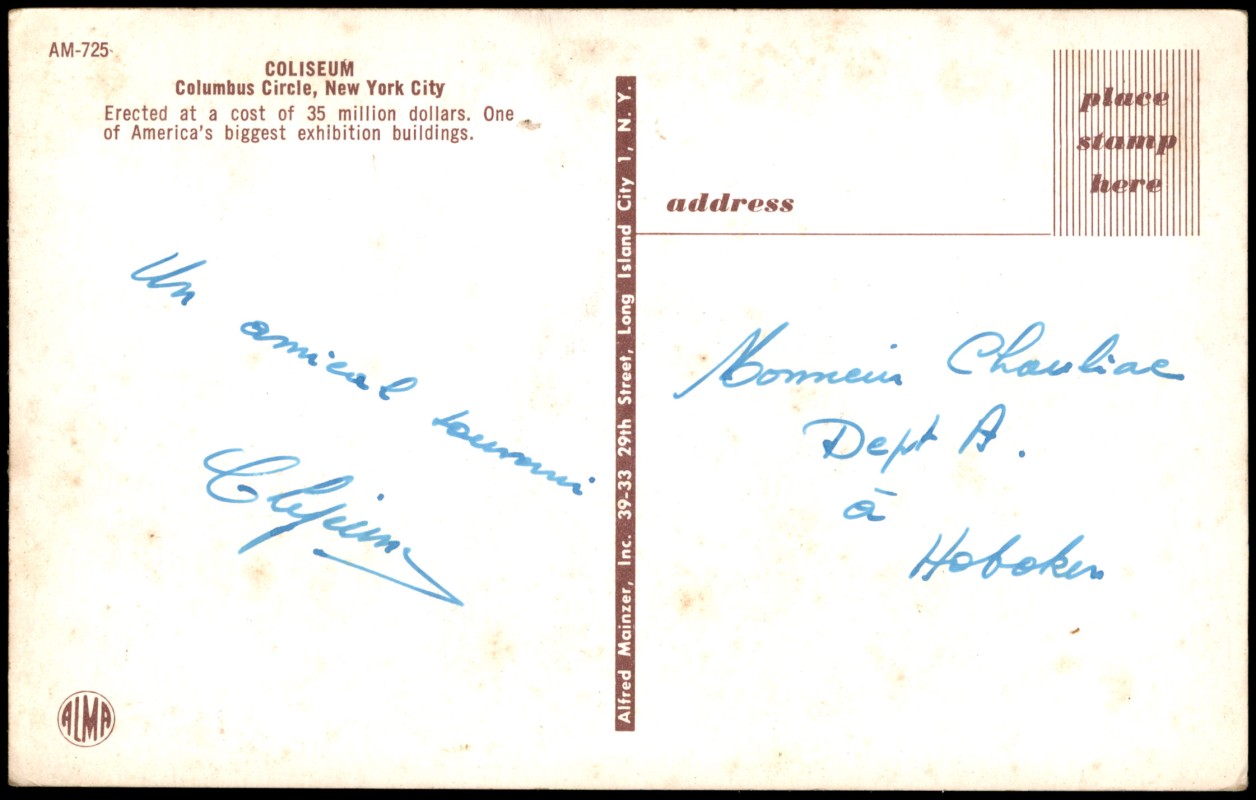 AM-725
COLISEUM
Columbus Circle, New York City
Erected at a cost of 35 million dollars. One
of America's biggest exhibition buildings.
Un
amical
souvenir
ALMA
Alfred Mainzer, Inc. 39-33 29th Street, Long Island City 1, N. Y.
place
stamp
here
address
Monsieur Chauliac
Dept A.
à
Hoboken